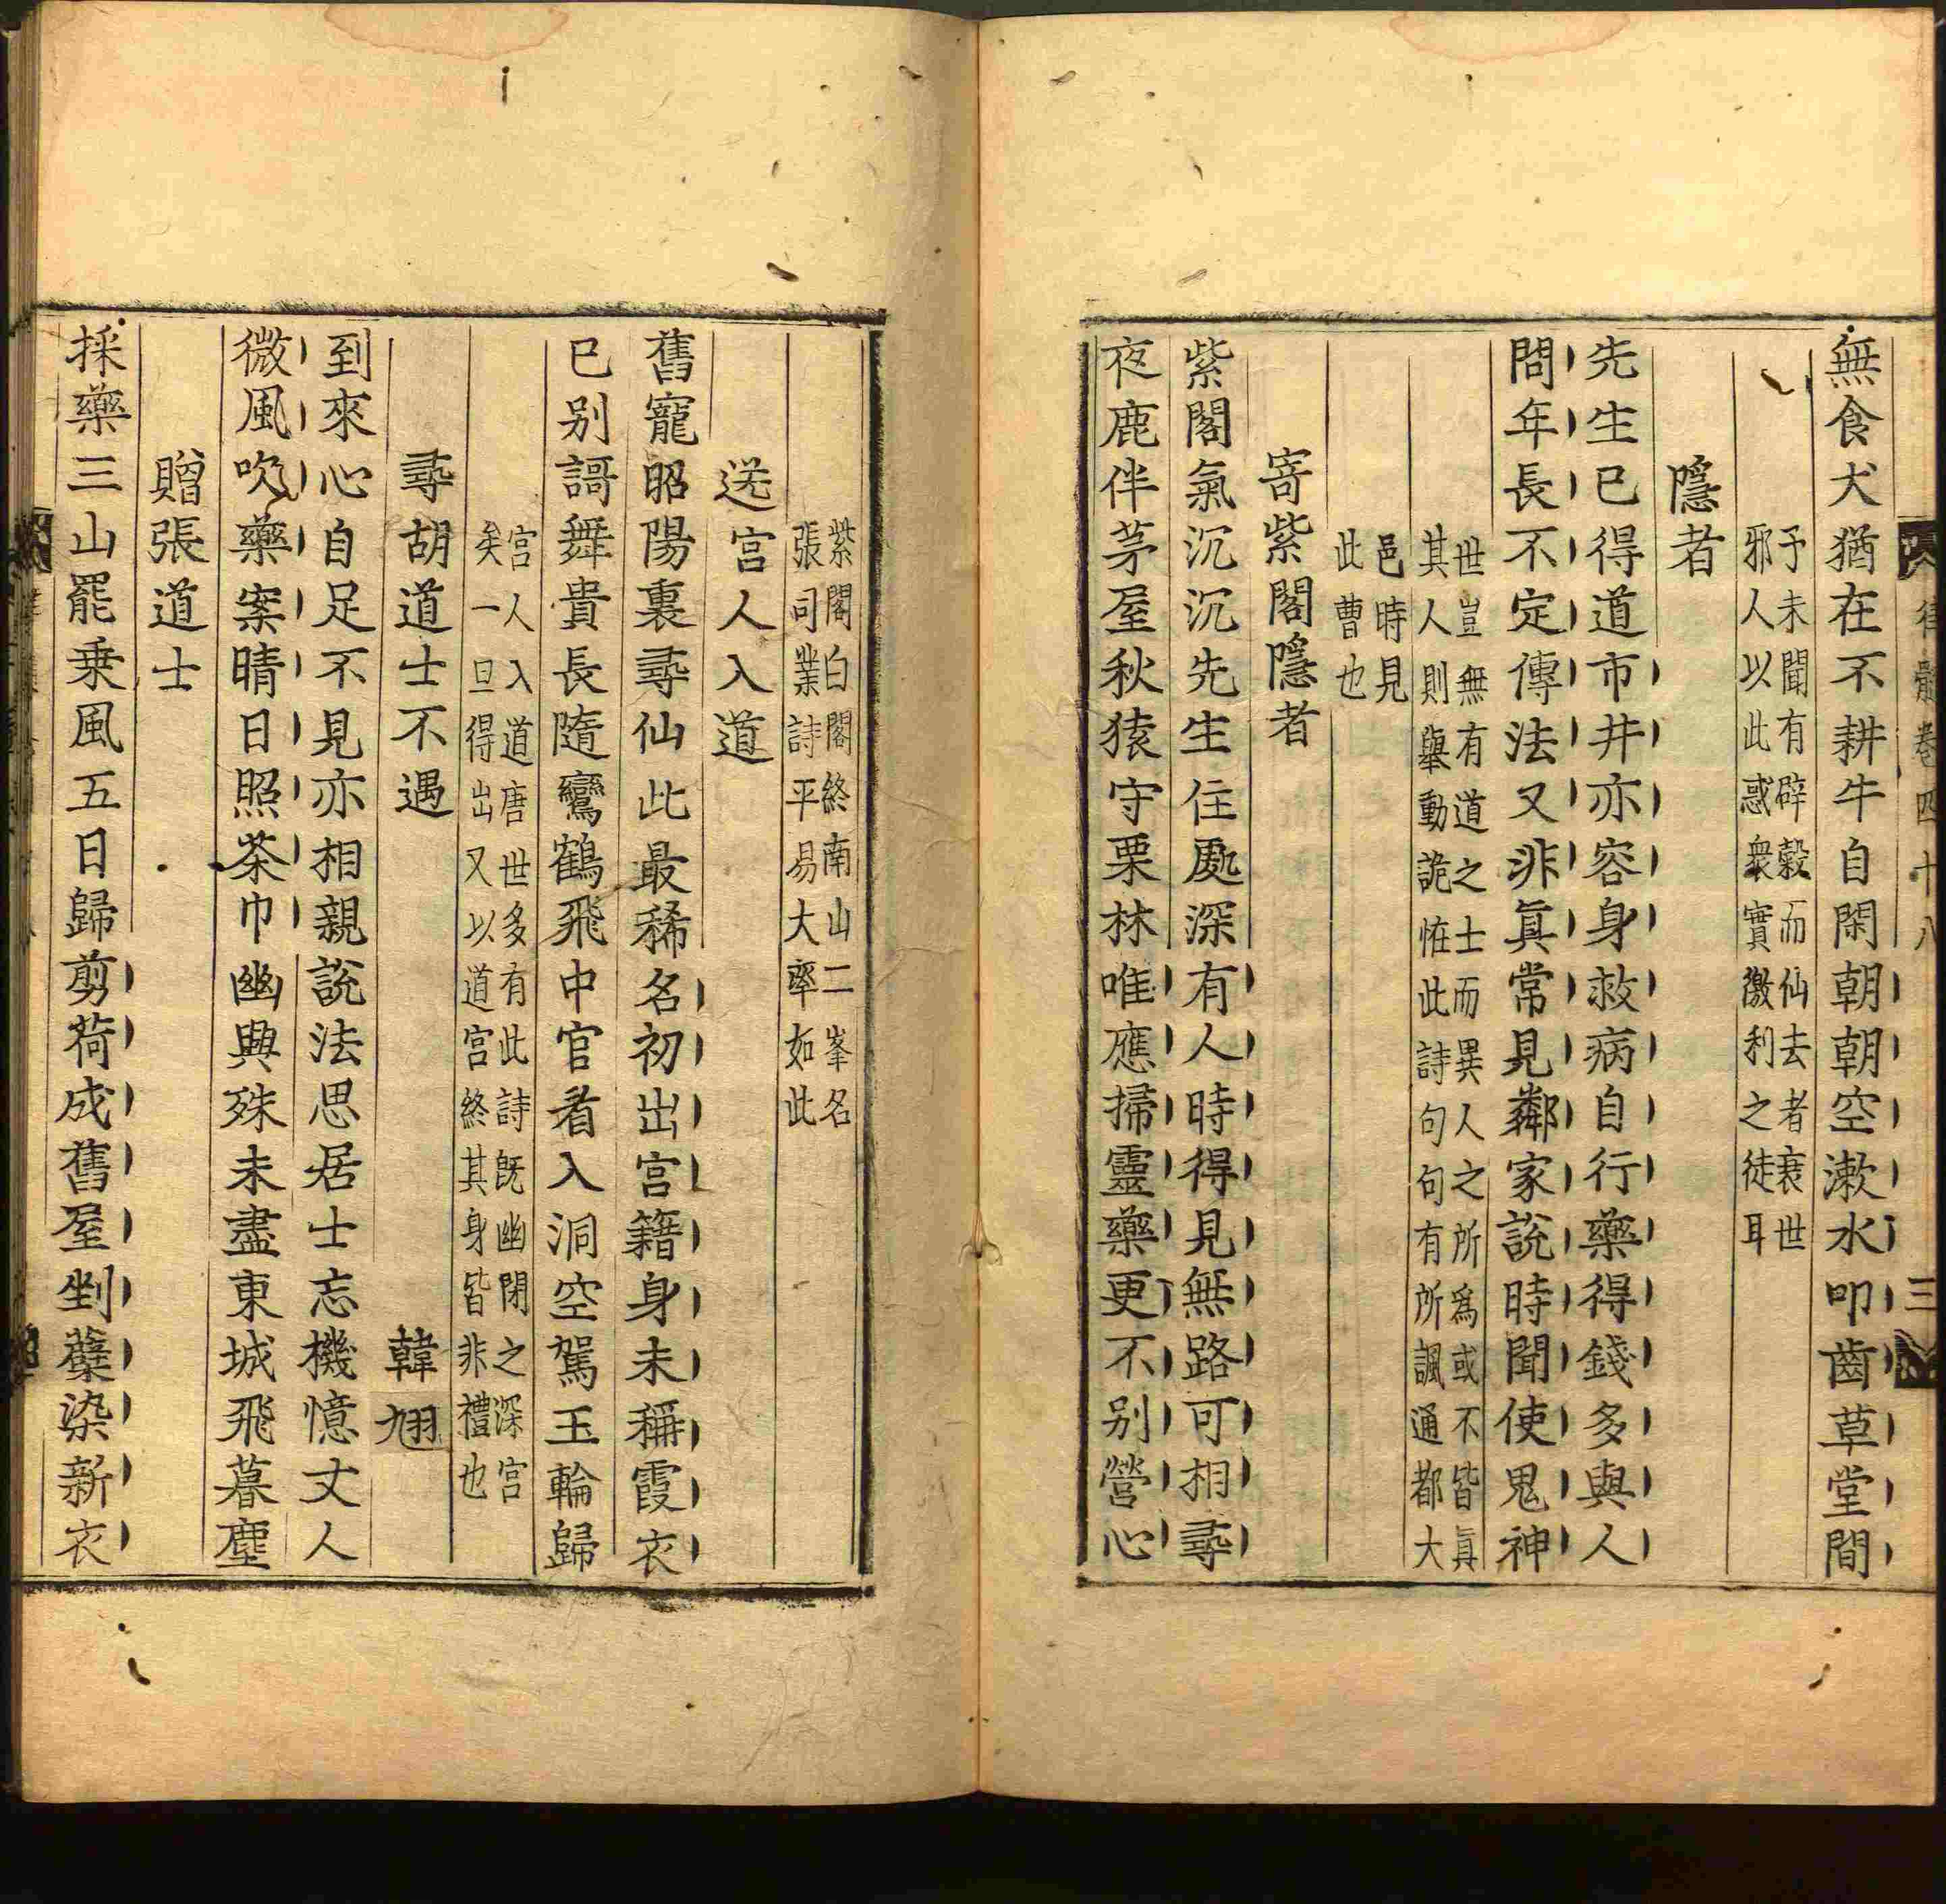 律髓卷四十八
三
無食犬猶在不耕牛自閑朝朝空漱水叩齒草堂間
予未聞有辟穀而仙去者衰世
邪人以此惑衆實徼利之徒耳
隱者
先生已得道市井亦容身救病自行藥得錢多與人
問年長不定傳法又非眞常見鄰家說時聞使鬼神
世豈無有道之士而異人之所爲或不皆眞
其人則舉動詭恠此詩句句有所諷通都大
邑時見
此曹也
寄紫閣隱者
紫閣氣沉沉先生住處深有人時得見無路可相尋
夜鹿伴茅屋秋猿守栗林唯應掃靈藥更不別營心
紫閣白閣終南山二峯名
張司業詩平易大率如此
送宮人入道
舊寵昭陽裏尋仙此最稀名初出宮籍身未稱霞衣
已別謌舞貴長隨鸞鶴飛中官看入洞空駕玉輪歸
宮人入道唐世多有此詩旣幽閉之深宮
矣一旦得出又以道宮終其身皆非禮也
尋胡道士不遇 韓翃
到來心自足不見亦相親說法思居士忘機憶丈人
微風吹藥案晴日照茶巾幽興殊未盡東城飛暮塵
贈張道士
採藥三山罷乗風五日歸剪荷成舊屋剉蘗染新衣